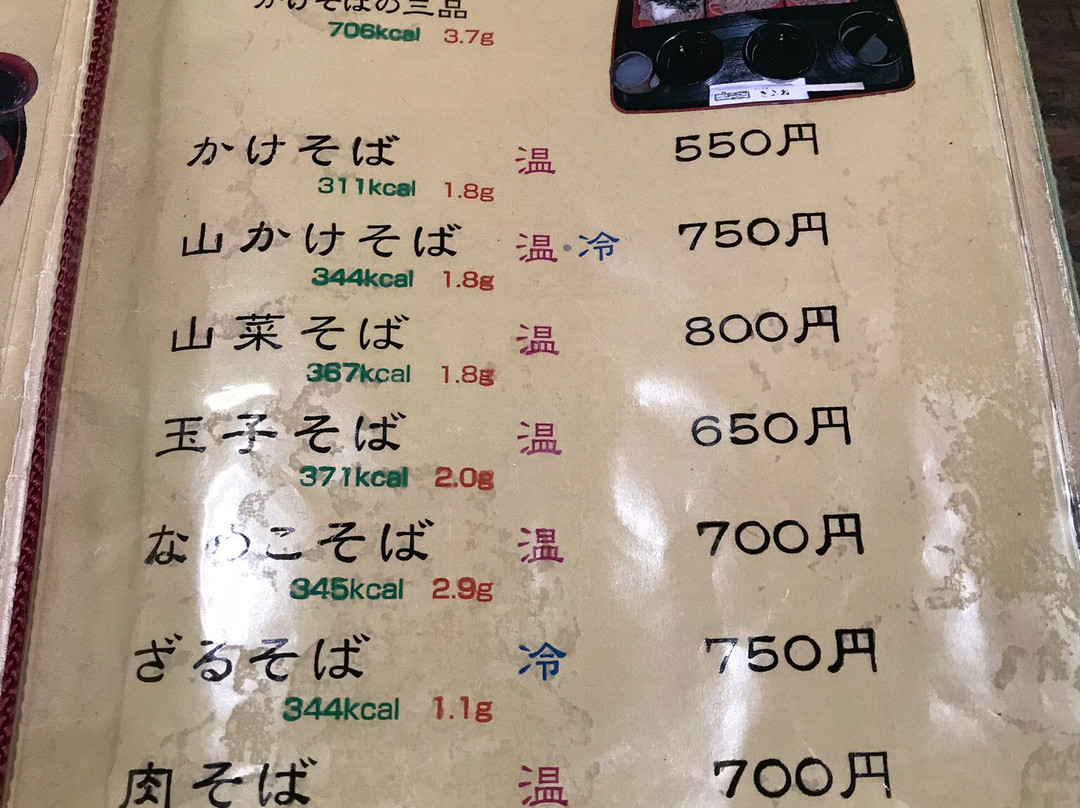 かけそばの三品
706kcal 3.7g
かけそば 温 550円
311kcal 1.8g
山かけそば 温・冷 750円
344kcal 1.8g
山菜そば 温 800円
367kcal 1.8g
玉子そば 温 650円
371kcal 2.0g
なめこそば 温 700円
345kcal 2.9g
ざるそば 冷 750円
344kcal 1.1g
肉そば 温 700円